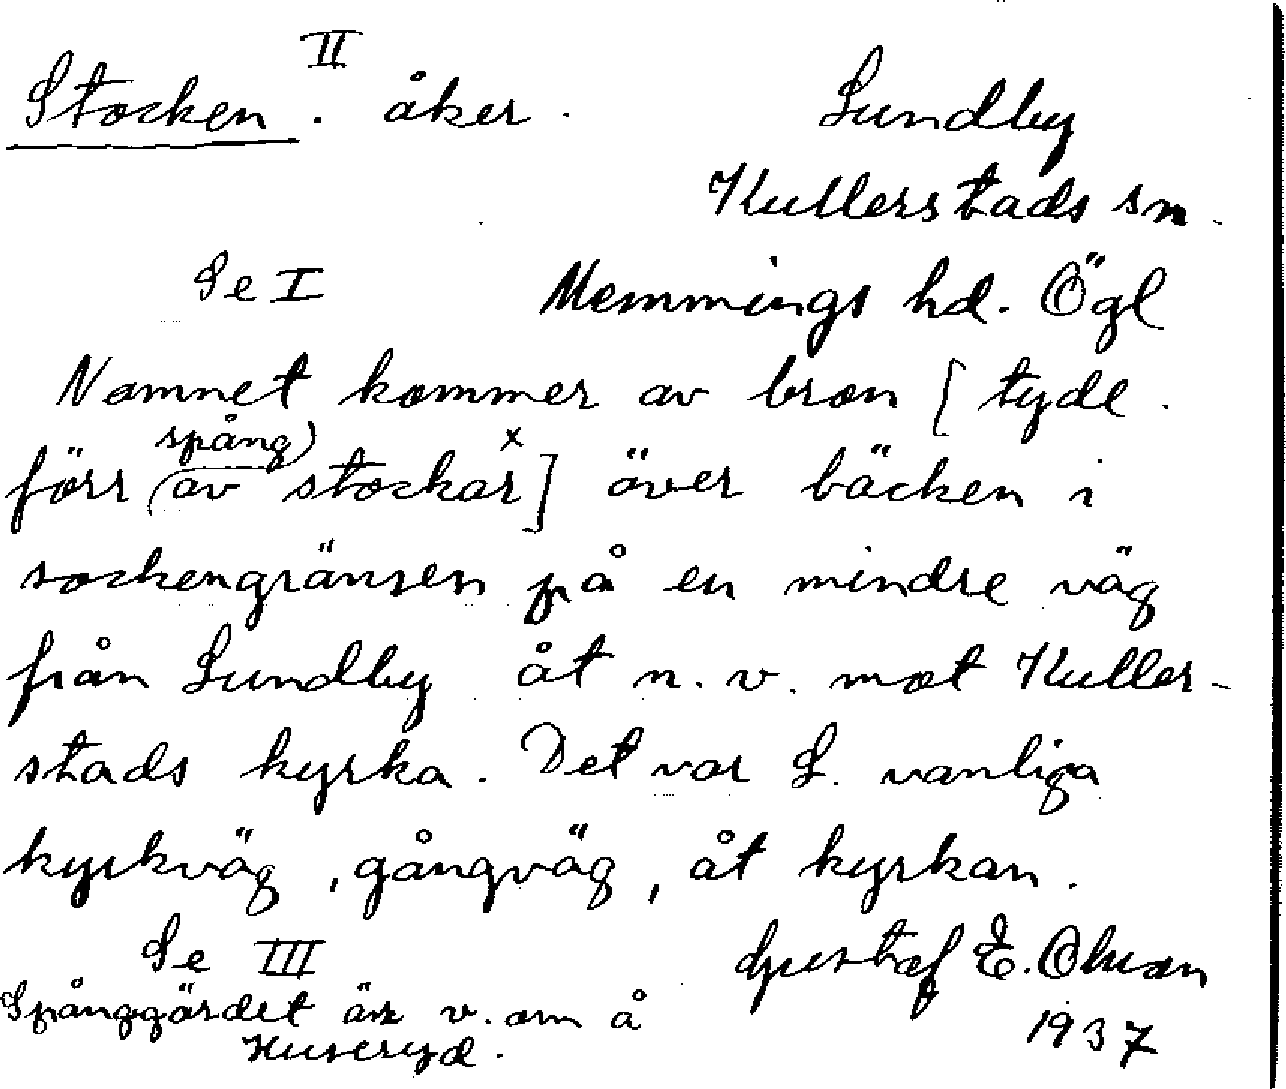 II
Stocken. åker. Lundby
Kullerstads sn.
Se I Memmings hd. Ögl
Namnet kommer av bron [tyde.
spång)
förr (av stockar x] över bäcken i
sockengränsen på en mindre väg
från Lundby åt n. v. mot Kuller-
stads kyrka. Det var L. vanliga
kyrkväg, gångväg, åt kyrkan.
Se III Gustaf E. Olsson
Spånggärdet är v. om å
Huseryd. 1937